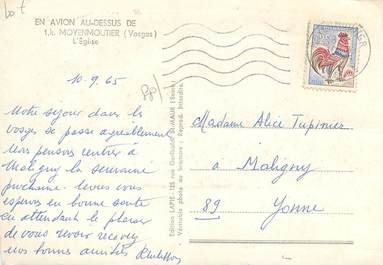 Lot
EN AVION AU-DESSUS DE
MOYENMOUTIER (Vosges)
L'Église
10.9.65
Notre séjour dans les
vosges se passe agréablement
nous pensons rentrer à
Maligny la semaine
prochaine. nous vous
espérons en bonne santé
en attendant le plaisir
de vous revoir recevez
nos bonnes amitiés
Edition LAPIE
Véritable photo au bromure - Reprod. Interdite
Madame Alice Tupinier
à Maligny
89 Yonne